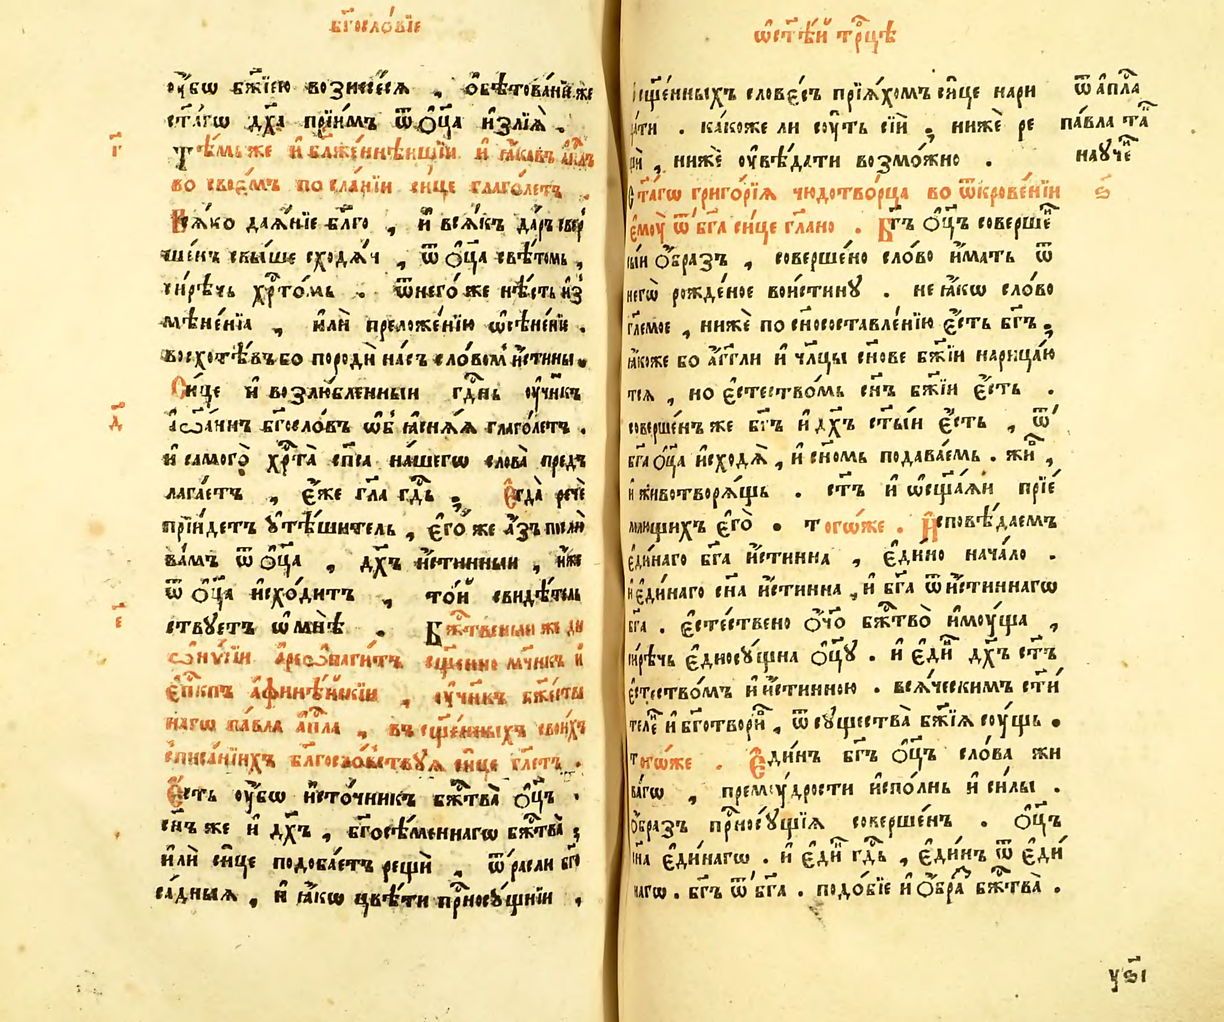 бг҃осло́вїе
ѹ҆́бѡ бж҃їею вознесе́сѧ , ѻ҆бѣтова́нїе же
ст҃а́гѡ дх҃а прїи́мъ ѿ ѻ҆ц҃а и҆злїѧ̀ .
г҃
тѣ́мъ же и҆ блаже́ннѣишїи и҆ і҆а́кѡвъ а҆пⷭ҇лъ
во свое́мъ посла́нїи си́це глаго́летъ .
Всѧ́ко даѧ́нїе бл҃го , и҆ всѧ́къ да́ръ свер
ше́нъ свы́ше сходѧ́й , ѿ ѻ҆ц҃а свѣ́томъ ,
си́рѣчь хрⷭ҇то́мъ . ѿ него́ же нѣ́сть и҆з
мѣне́нїѧ , и҆лѝ преложе́нїю ѡ҆сѣне́нїе .
восхотѣ́въ бо породѝ на́съ сло́вомъ и҆́стины .
Си́це и҆ возлю́бленныи гдⷭ҇нь ѹ҆чн҃къ
д҃
і҆ѡа́ннъ бг҃осло́въ ѡ҆б̾ѧснѧ́ѧ глаго́летъ .
и҆ самого̀ хрⷭ҇та̀ сп҃са на́шегѡ словà предъ
лага́етъ , є҆́же гл҃а гдⷭ҇ь . Є҆гда̀ речѐ
прїи́детъ ѹ҆тѣ́шитель , є҆го́ же а҆́зъ послю̀
ва́мъ ѿ ѻ҆ц҃а , дх҃ъ и҆́стинныи , и҆́же
ѿ ѻ҆ц҃а и҆схо́дитъ , то́й свидѣ́тель
ствуетъ ѡ҆ мнѣ̀ . Бж҃е́ственыи же ди
є҃
ѡни́сїи а҆реѡпаги́тъ сщ҃енно мч҃нкъ и҆
є҆пⷭ҇кпъ а҆фине́йскїи , ѹ҆чн҃къ бж҃е́стве
нагѡ па́вла а҆пⷭ҇ла , въ сщ҃е́нныхъ свои́хъ
списа́нїихъ бг҃осло́вствуѧ си́це гл҃етъ .
Є҆́сть ѹ҆́бѡ и҆сто́чникъ бж҃тва̀ ѻ҆ц҃ъ .
сн҃ъ же и҆ дх҃ъ , бг҃осѣ́меннагѡ бж҃тва̀ ,
и҆лѝ си́це подоба́етъ рещѝ , ѿ́расли бг҃о
са́дныѧ , и҆ ꙗ҆́кѡ цвѣ́ти прⷭ҇носу́щнїи ,
ѡ҆ ст҃ѣ́й трⷪ҇цѣ
сщ҃е́нныхъ слове́съ прїѧ́хомъ си́це нари
ца́ти . ка́коже ли сѹ́ть сїѝ , нижѐ ре
щѝ , нижѐ ѹ҆вѣ́дати возмо́жно .
ѿ а҆пⷭ҇ла
па́вла та҃
научє҃
Ст҃а́гѡ григо́рїѧ чюдотво́рца во ѿкрове́нїи
ѕ҃
є҆мѹ̀ ѿ бг҃а си́це гл҃ано . Бг҃ъ ѻ҆ц҃ъ соверше́н
ныи ѻ҆́бразъ , соверше́но сло́во и҆́мать ѿ
негѡ̀ рожде́ное вои́стину . не ꙗ҆́кѡ сло́во
гл҃емое , нижѐ по сн҃оcоставле́нїю є҆́сть бг҃ъ ,
ꙗ҆́коже бо а҆́гг҃ли и҆ чл҃цы сн҃ове бж҃їи нарица́ю
тсѧ , но є҆стество́мъ сн҃ъ бж҃їи є҆́сть .
соверше́нъ же бг҃ъ и҆ дх҃ъ ст҃ы́и є҆́сть , ѿ
бг҃а ѻ҆ц҃а и҆сходѧ̀ , и҆ сн҃омъ подава́емь . жи҃в ,
и҆ животворѧ́щь . ст҃ъ и҆ ѡ҆сщ҃а́ѧи прїе
млющихъ є҆го̀ . Тогѡ́же . И҆сповѣ́даемъ
є҆ди́наго бг҃а и҆́стинна , є҆ди́но нача́ло .
и҆ є҆ди́наго сн҃а и҆́стинна , и҆ бг҃а ѿ и҆́стиннагѡ
бг҃а . є҆сте́ствено ѻ҆ч҃о бж҃тво̀ и҆мѹ́ща ,
си́рѣчь є҆дносу́щна ѻ҆ц҃у . и҆ є҆ди́н дх҃ъ ст҃ъ
є҆стество́мъ и҆ и҆́стинною . всѧ́ческимъ ст҃и́
тель и҆ бг҃отвори́в , ѿ существа̀ бж҃їѧ сѹ́щь .
Тогѡ́же . Є҆ди́нъ бг҃ъ ѻ҆ц҃ъ сло́ва жи
ва́гѡ , прему́дрости и҆спо́лнь и҆ си́лы .
ѻ҆́бразъ прⷭ҇носу́щїѧ соверше́нъ . ѻ҆ц҃ъ
сн҃а є҆ди́нагѡ . и҆ є҆ди́н гдⷭ҇ь , є҆ди́нъ ѿ є҆ди́
нагѡ . бг҃ъ ѿ бг҃а . подо́бїе и҆ ѻ҆́бра бж҃тва̀ .
уѕ҃і